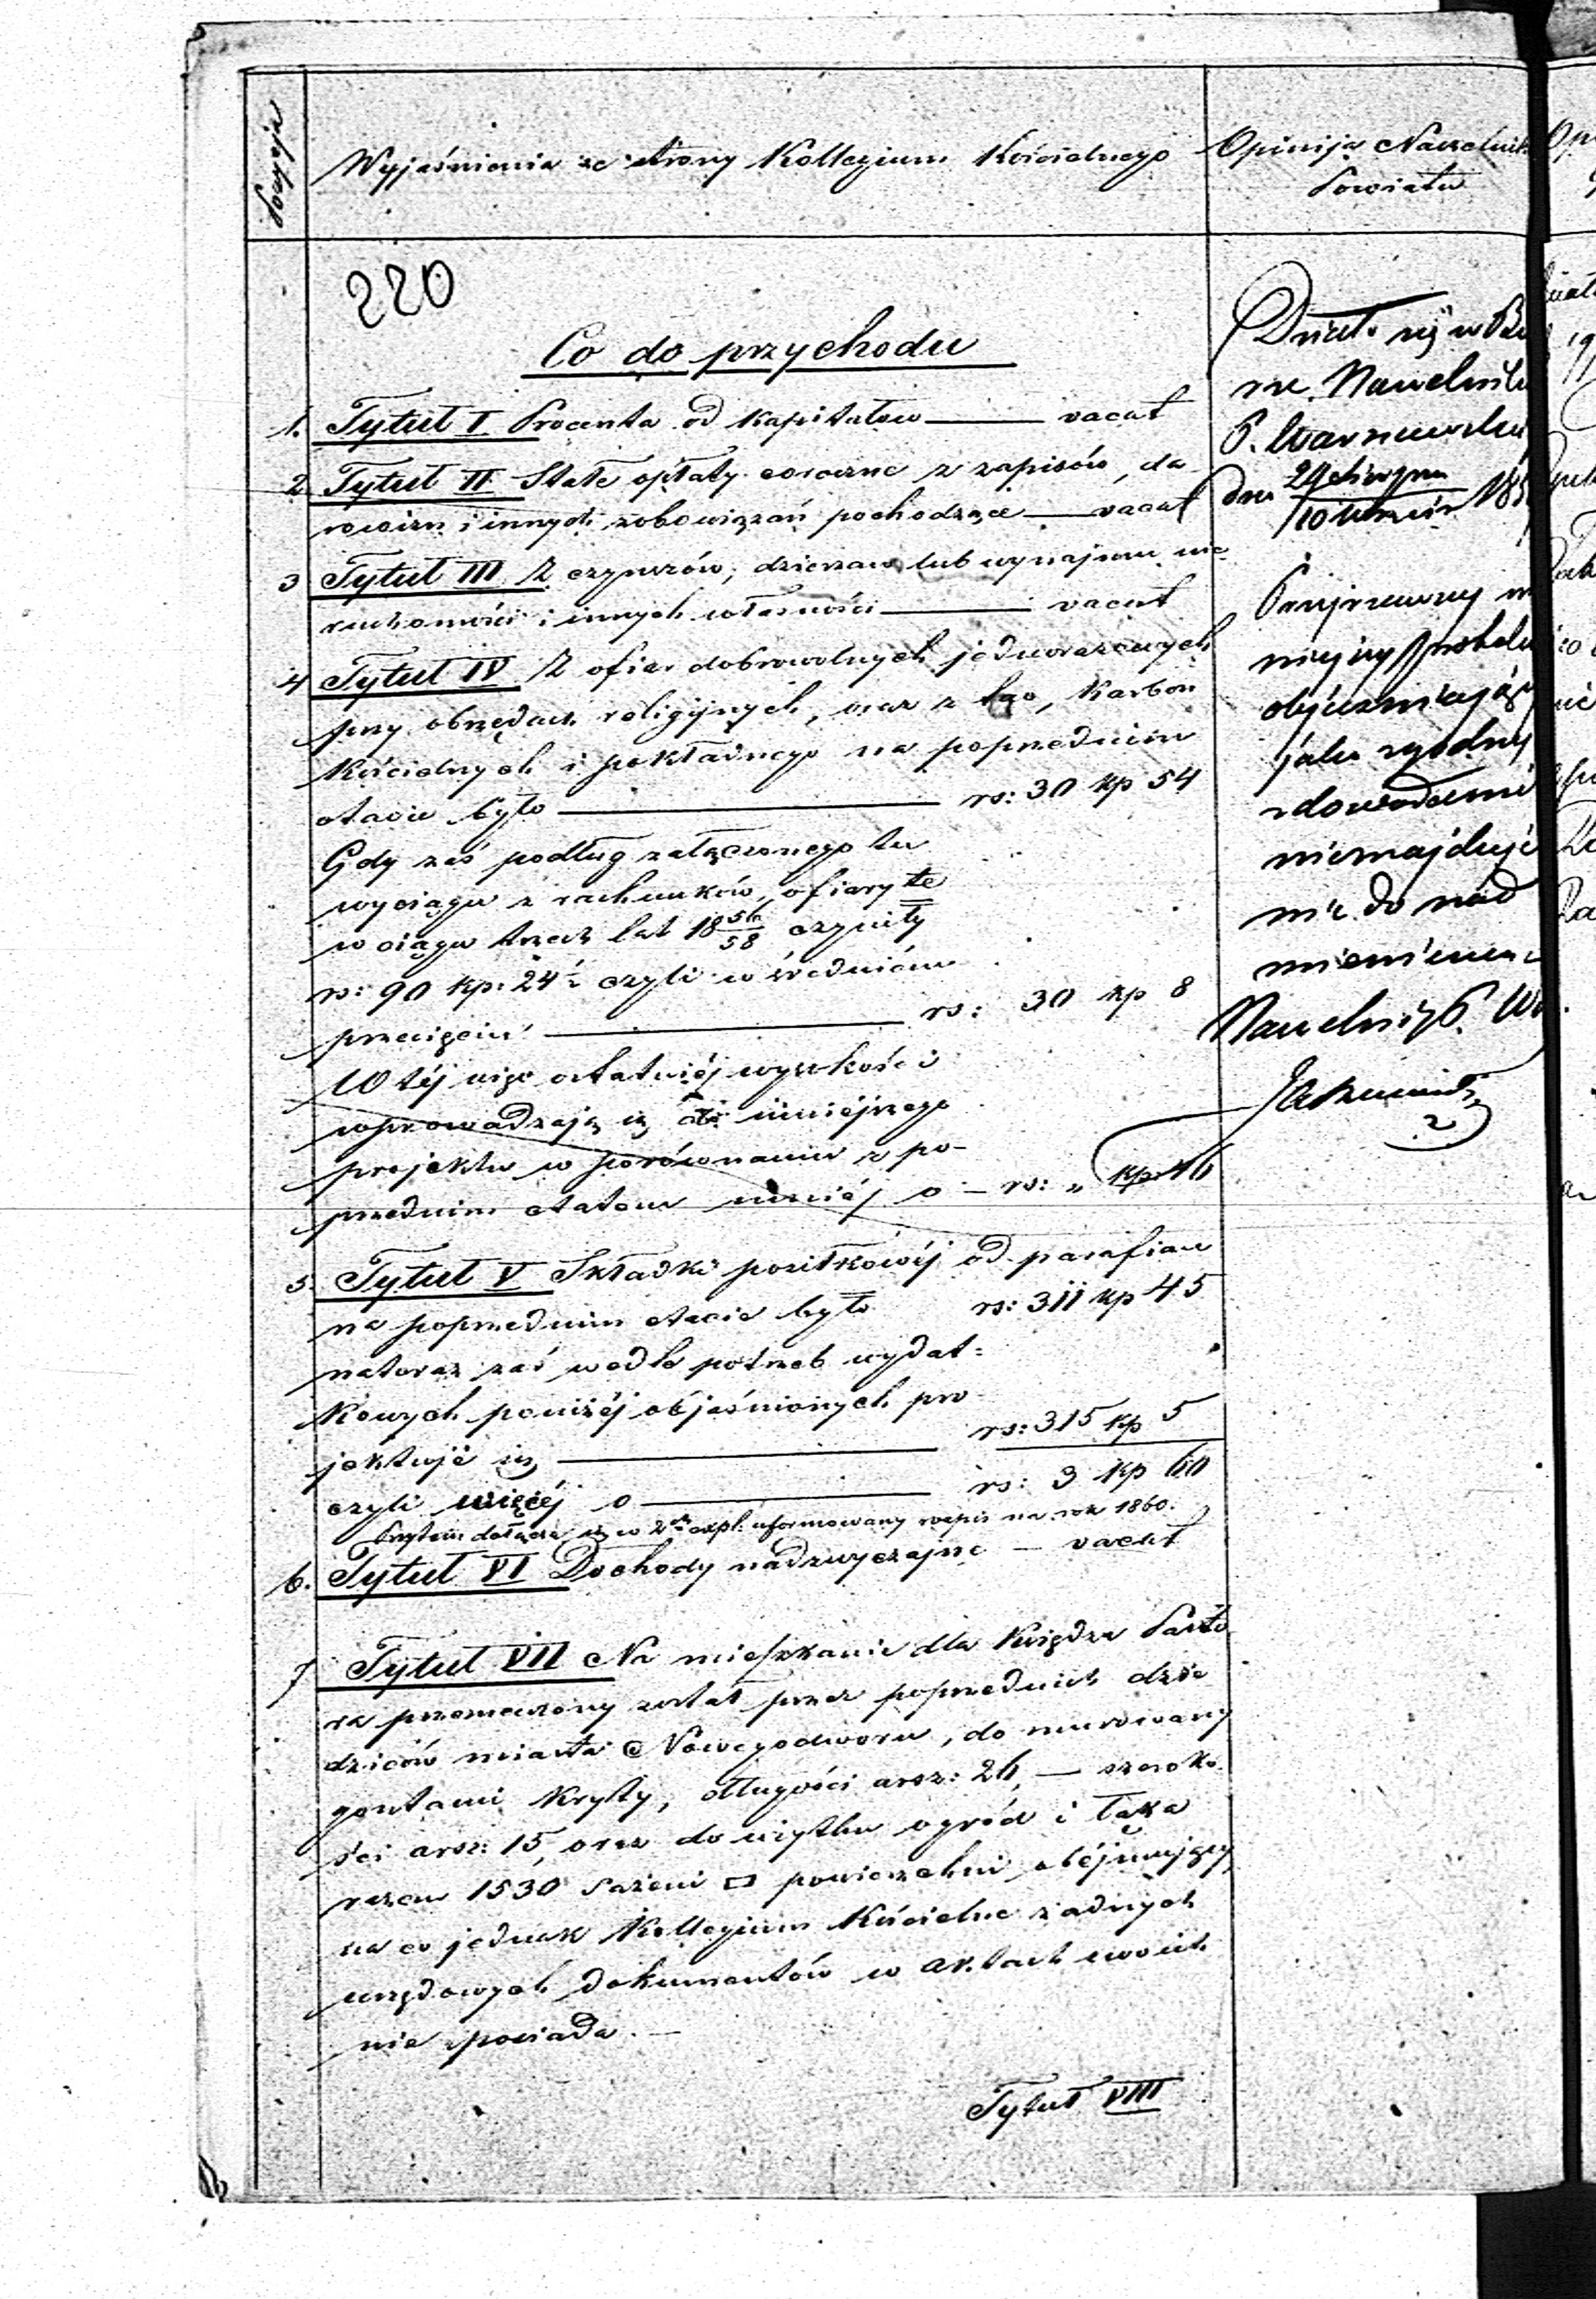 Pozycja
Wyjaśnienia ze strony Kollegium Kościelnego
Opinija Naczelnika
Powiatu
220
Co do przychodu
1. Tytuł I Procenta od kapitałow — vacat
2 Tytuł II Stałe opłaty coroczne z zapisów, da
rowizn i innych zobowiązań pochodzące — vacat
3 Tytuł III Z czynszów, dzierzaw lub wynajmu nie-
ruchomości i innych własności — vacat
4 Tytuł IV Z ofiar dobrowolnych jednorazowych
przy obrzędach religijnych, oraz z tac, karbon
kościelnych i pokładnego na poprzednim
etacie było — rs: 30 kp 54
Gdy zaś podług załączonego tu
wyciągu z rachunków, ofiary te
w ciągu trzech lat 18 56/58 czyniły
rs: 90 kp: 24 czyli w średniém
przecięciu — rs: 30 kp 8
W téj więc ostatniéj wysokości
wprowadzają się do niniejszego
projektu w porównaniu z po-
przednim etatem mniéj o — rs: „ kp 46
5. Tytuł V Składki posiłkowéj od parafian
na poprzednim etacie było rs: 311 kp 45
nateraz zaś wedle potrzeb wydat=
kowych poniżéj objaśnionych pro
jektuje się — rs: 315 kp 5
czyli więcéj o — rs: 3 kp 60
Przytém dołącza się w 2ch expl: uformowany rozpis na rok 1860.
6. Tytuł VI Dochody nadzwyczajne — vacat
7 Tytuł VII Na mieszkanie dla Księdza Pasto
ra przeznaczony został przez poprzednich dzie
dziców miasta Nowegodworu, do murowany
gontami kryty, długości arsz: 26, — szeroko
ści arsz: 15, oraz do użytku ogród i łąka
razem 1530 sążeni □ powierzchni obéjmujący,
na co jednak Kollegium Kościelne żadnych
urzędowych dokumentów w aktach swoich
nie posiada. —
Tytuł VIII
Działo się w Biu
rze Naczelnika
P. Warszawskiego
dnia 29 Sierpnia/10 Września 185
Przejrzawszy
objaśniający
jako zgodny
z dowodami
nieznajduje
nic do nad
mienienia
Naczelnik P. W